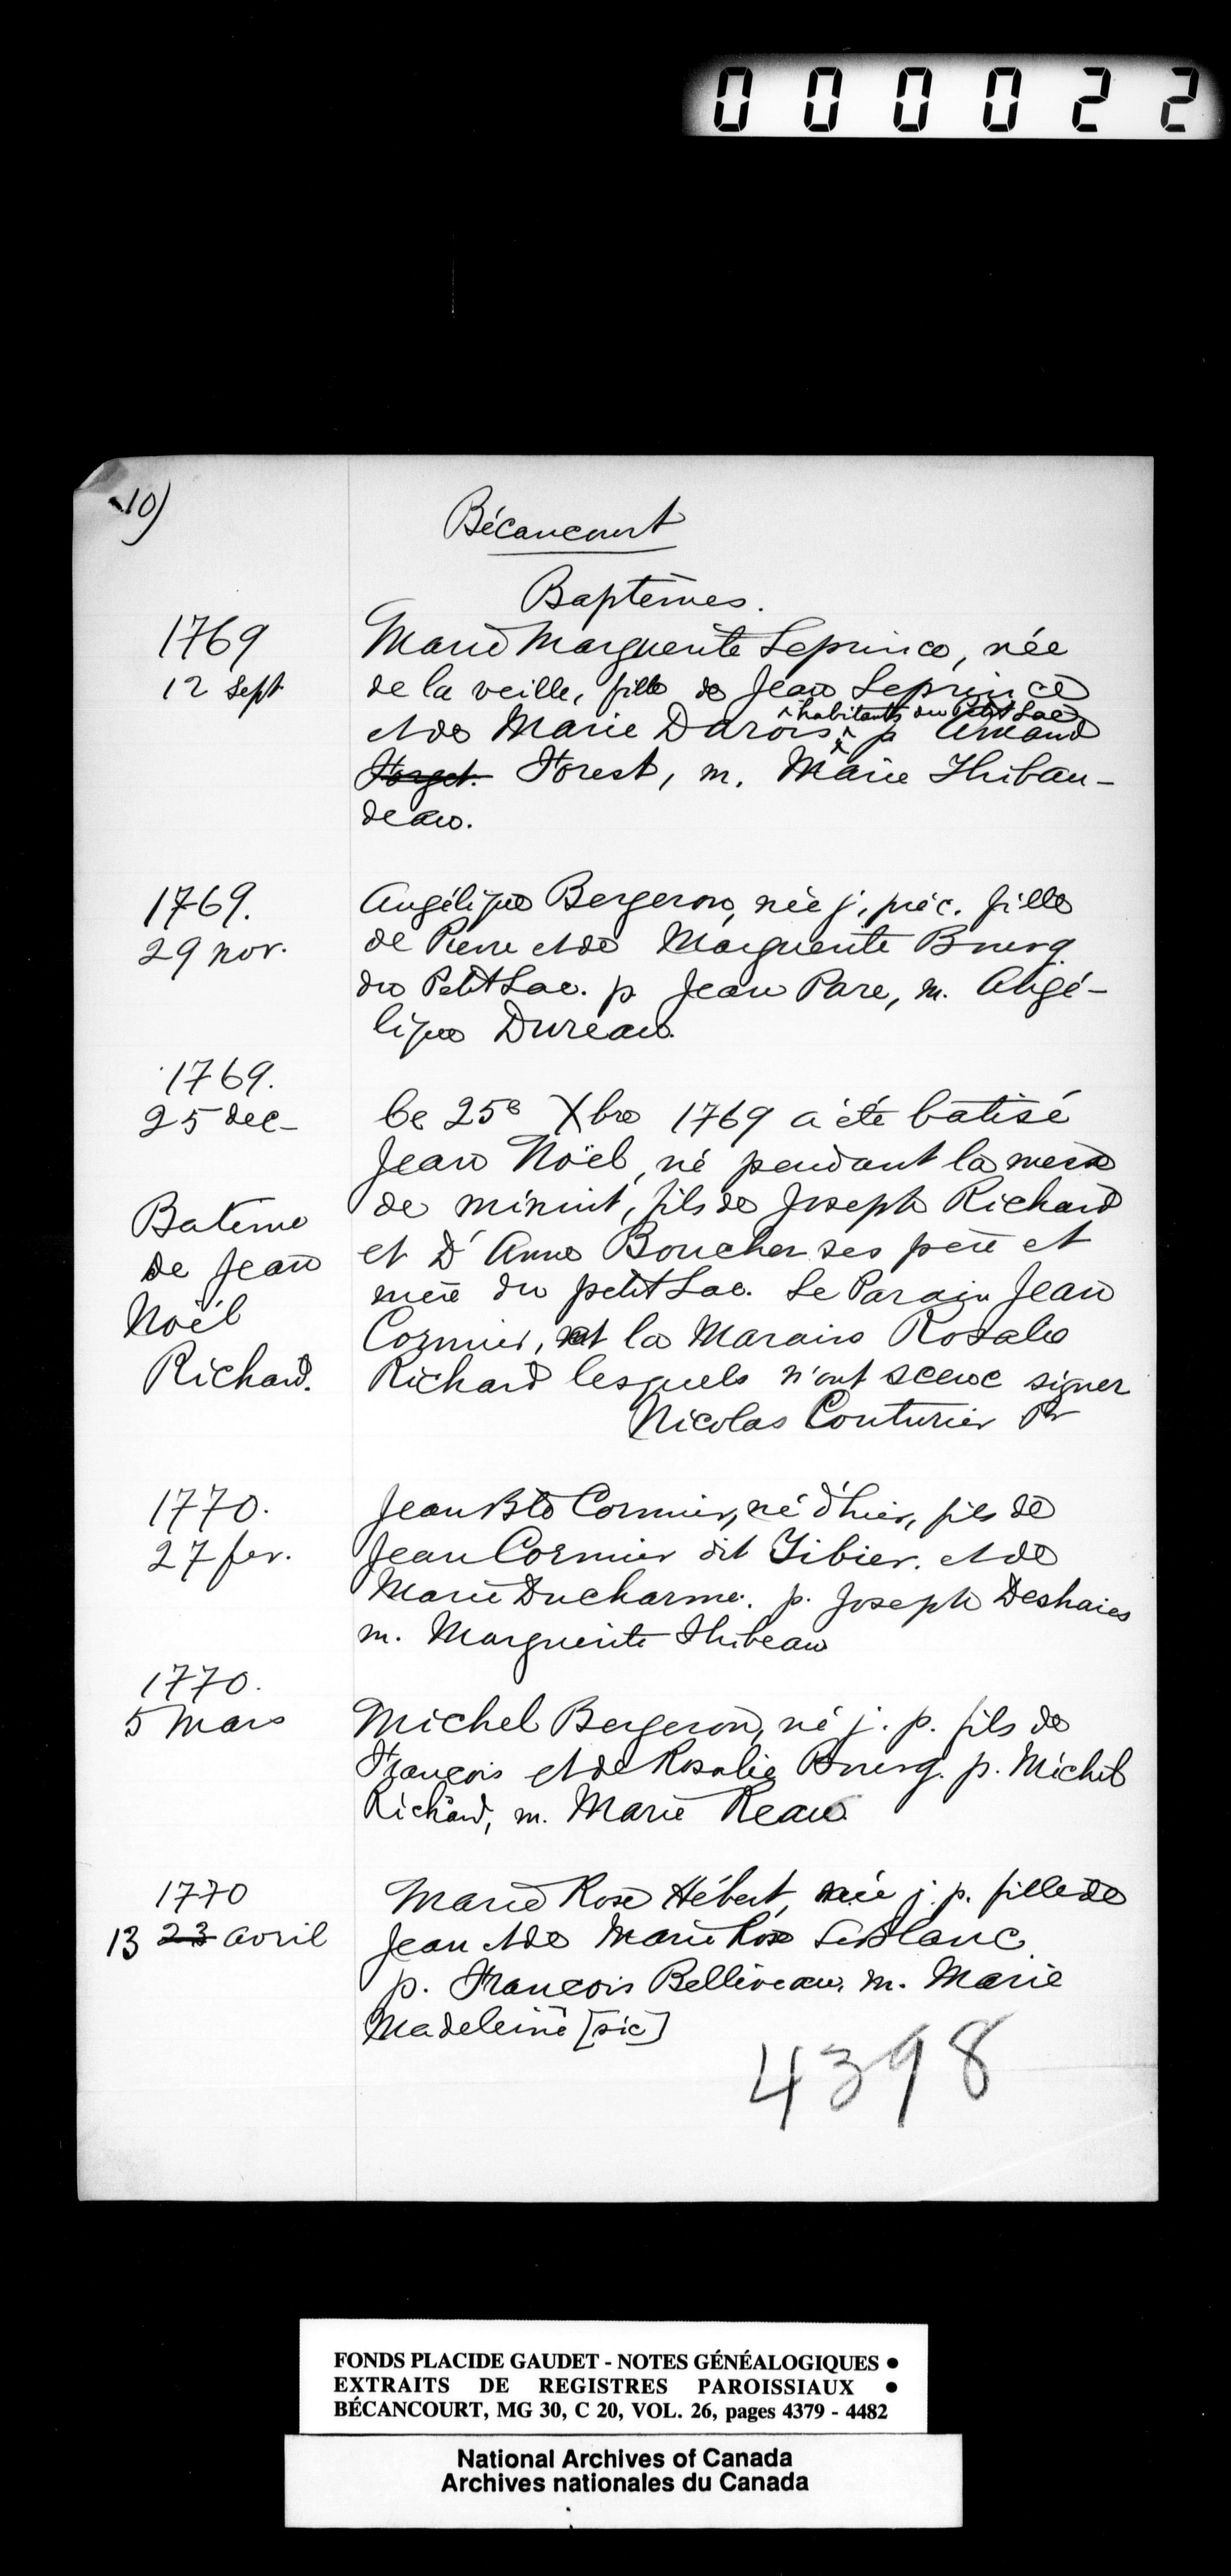 000022
10)
Bécancourt
Baptêmes.
1769
12 Sept
Marie Marguerite Leprince, née
de la veille, fille de Jean Leprince
et de Marie Darois, habitants du Petit Lac, p Amand
Forget. Forest, m. Marie Thibau-
deau.
1769.
29 nov.
Angélique Bergeron, née j. préc. fille
de Pierre et de Marguerite Bourg
du Petit Lac. p Jean Pare, m. Angé-
lique Dureau.
1769.
25 dec-
Batême
de Jean
Noël
Richard.
Le 25e Xbre 1769 a été batisé
Jean Noël, né pendant la messe
de minuit, fils de Joseph Richard
et D'Anne Boucher ses père et
mère du petit Lac. Le Parain Jean
Cormier, et la Maraine Rosalie
Richard lesquels n'ont sceue signer
Nicolas Couturier Ptr
1770.
27 fev.
Jean Bte Cormier, né d'hier, fils de
Jean Cormier dit Tibier. et de
Marie Ducharme. p. Joseph Deshaies
m. Marguerite Thibeau
1770.
5 Mars
Michel Bergeron, né j. p. fils de
François et de Rosalie Bourg. p. Michel
Richard, m. Marie Reau
1770
13 23 avril
Marie Rose Hébert, née j. p. fille de
Jean et de Marie Rose LeBlanc
p. François Belliveau, m. Marie
Madeleine [sic]
4398
FONDS PLACIDE GAUDET - NOTES GÉNÉALOGIQUES •
EXTRAITS DE REGISTRES PAROISSIAUX •
BÉCANCOURT, MG 30, C 20, VOL. 26, pages 4379 - 4482
National Archives of Canada
Archives nationales du Canada